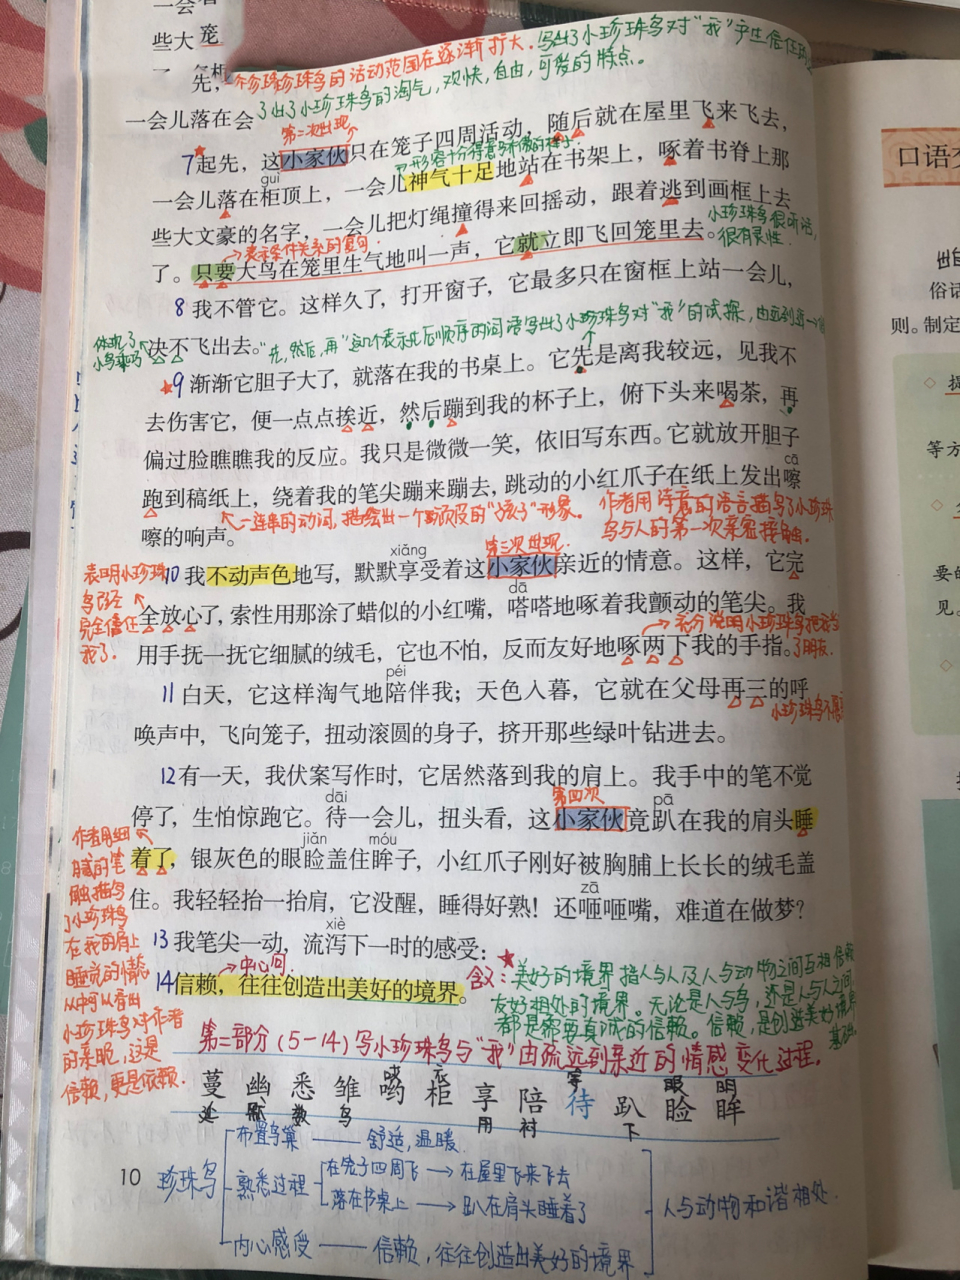 一会
些大笼
先，
个珍珠鸟的活动范围在逐渐扩大。写出了小珍珠鸟对“我”产生信任
一会儿落在
写出了小珍珠鸟的淘气，欢快，自由，可爱的特点。
第二次出现
7起先，这小家伙只在笼子四周活动，随后就在屋里飞来飞去，
guì
形容十分得意
一会儿落在柜顶上，一会儿神气十足地站在书架上，啄着书脊上那
些大文豪的名字，一会儿把灯绳撞得来回摇动，跟着逃到画框上去
表示条件关系的复句。
小珍珠鸟很听话，
很有灵性。
了。只要大鸟在笼里生气地叫一声，它就立即飞回笼里去。
8 我不管它。这样久了，打开窗子，它最多只在窗框上站一会儿，
体现了
小鸟乖巧
决不飞出去。
“先，然后，再”这几个表示先后顺序的词语写出了小珍珠鸟对“我”的试探，由远到近
9 渐渐它胆子大了，就落在我的书桌上。它先是离我较远，见我不
去伤害它，便一点点挨近，然后蹦到我的杯子上，俯下头来喝茶，再
偏过脸瞧瞧我的反应。我只是微微一笑，依旧写东西。它就放开胆子
cā
跑到稿纸上，绕着我的笔尖蹦来蹦去，跳动的小红爪子在纸上发出嚓
一连串的动词，描绘出一个顽皮的“孩子”形象。
作者用诗意的语言描写了小珍珠
鸟与人的第一次亲密接触。
嚓的响声。
xiǎng
第三次出现
10 我不动声色地写，默默享受着这小家伙亲近的情意。这样，它完
表明小珍珠
鸟已经
完全信任
我了。
dā
全放心了，索性用那涂了蜡似的小红嘴，嗒嗒地啄着我颤动的笔尖。我
充分说明小珍珠鸟把我当
了朋友。
用手抚一抚它细腻的绒毛，它也不怕，反而友好地啄两下我的手指。
péi
11 白天，它这样淘气地陪伴我；天色入暮，它就在父母再三的呼
小珍珠鸟不愿
唤声中，飞向笼子，扭动滚圆的身子，挤开那些绿叶钻进去。
12有一天，我伏案写作时，它居然落到我的肩上。我手中的笔不觉
dāi
第四次
pā
停了，生怕惊跑它。待一会儿，扭头看，这小家伙竟趴在我的肩头睡
jiǎn
móu
着了，银灰色的眼睑盖住眸子，小红爪子刚好被胸脯上长长的绒毛盖
zā
住。我轻轻抬一抬肩，它没醒，睡得好熟！还咂咂嘴，难道在做梦？
xiè
13 我笔尖一动，流泻下一时的感受：
中心句。
14信赖，往往创造出美好的境界。
作者用细
腻的笔
触描写
了小珍珠鸟
在我的肩上
睡觉的情态
从中可以看出
小珍珠鸟对作者
的亲昵，这是
信赖，更是依赖。
含义：美好的境界指人与人及人与动物之间互相信赖
友好相处的境界。无论是人与鸟，还是人与人之间
都是需要真诚的信赖。信赖，是创造美好境界
基础。
第二部分（5-14）写小珍珠鸟与“我”由疏远到亲近的情感变化过程。
蔓 幽 悉 雏 哟 柜 享 陪 待 趴 睑 眸
布置鸟巢——舒适，温暖
珍珠鸟
熟悉过程
在笼子四周飞→在屋里飞来飞去
落在书桌上→趴在肩头睡着了
内心感受——信赖，往往创造出美好的境界
人与动物和谐相处
10
口语交
俗话
则。制定
等方
要的
见。